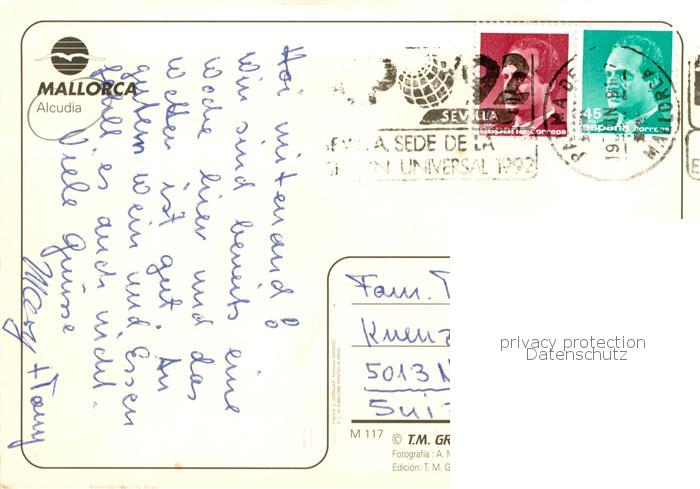 MALLORCA
Alcudia
Hoi mitenand!
Wir sind bereits eine
Woche hier und das
Wetter ist gut. An
gutem Wein und Essen
fehlt es auch nicht.
Viele Grüsse
Mary + Tony
SEVILLA
SEVILLA, SEDE DE LA
UNIVERSAL 1992
PALMA DE MALLORCA
19
España correos
45
España correos
Fam.
Kuenz
5013 N
Suiz
privacy protection
Datenschutz
M 117
© T.M. GR
Fotografia : A. M
Edición: T. M. G